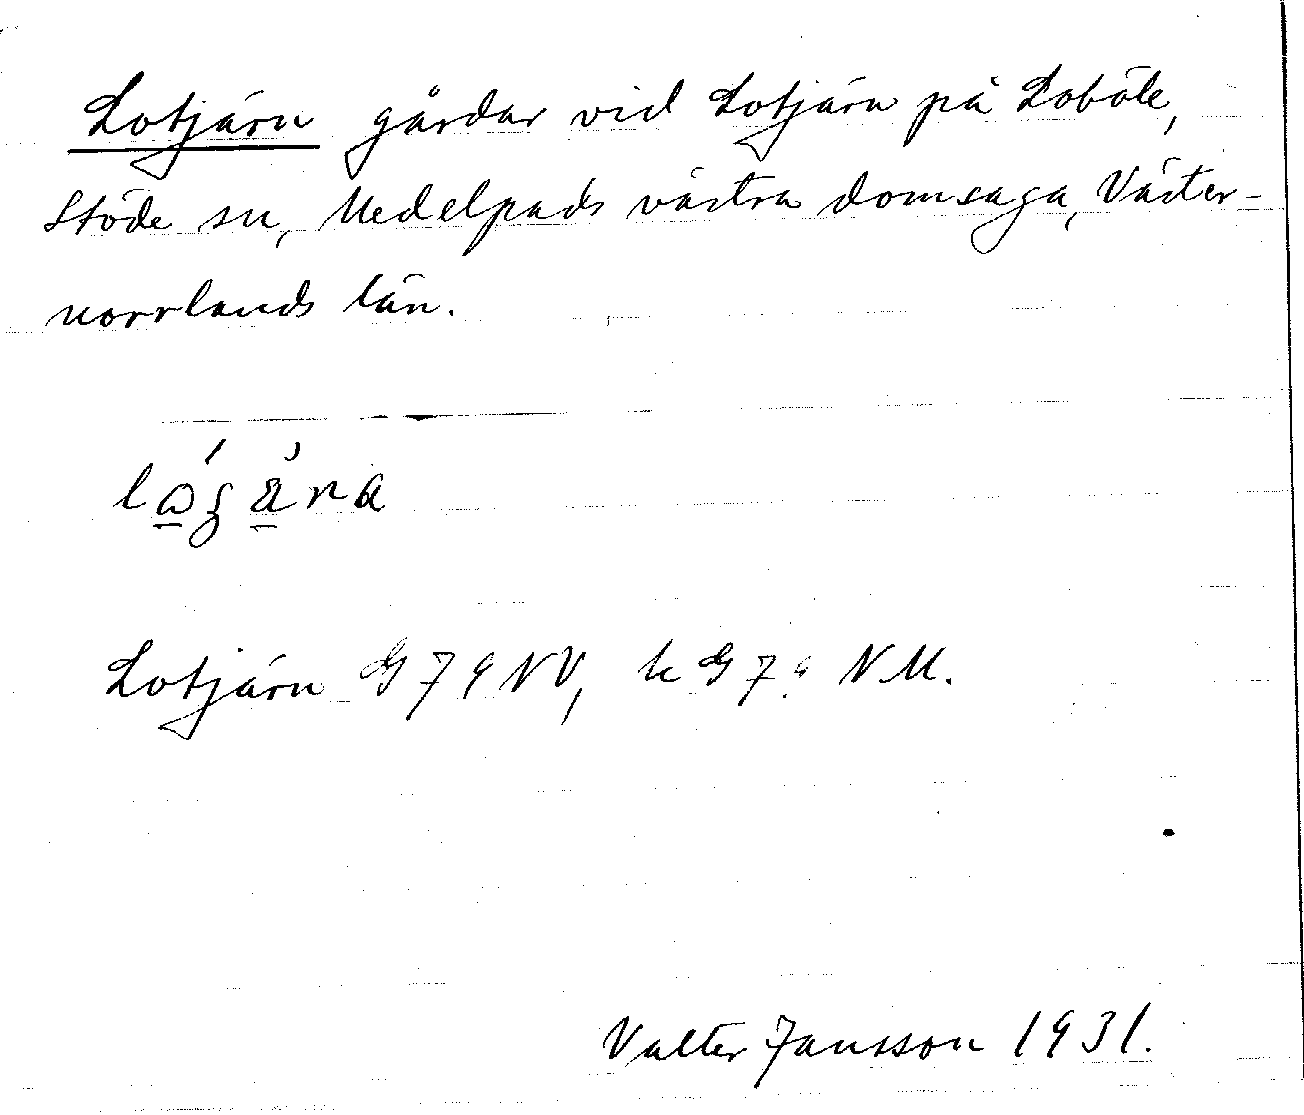 Lotjärn gårdar vid Lotjärn på Loböle,
Stöde sn, Medelpads västra domsaga, Väster-
norrlands län.
Lotjärn G 79 NV, k G 79 NM.
Valter Jansson 1931.